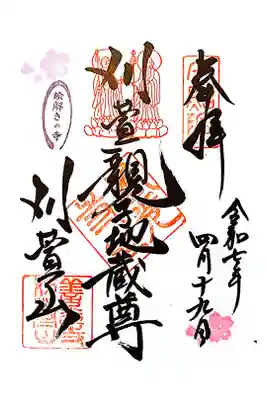 奉拝
令和七年
四月十九日
刈萱親子地蔵尊
刈萱山
絵解きの寺